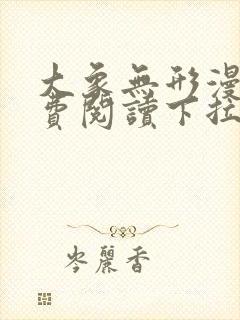 大象無形漫
費閱讀下拉
岑麗香